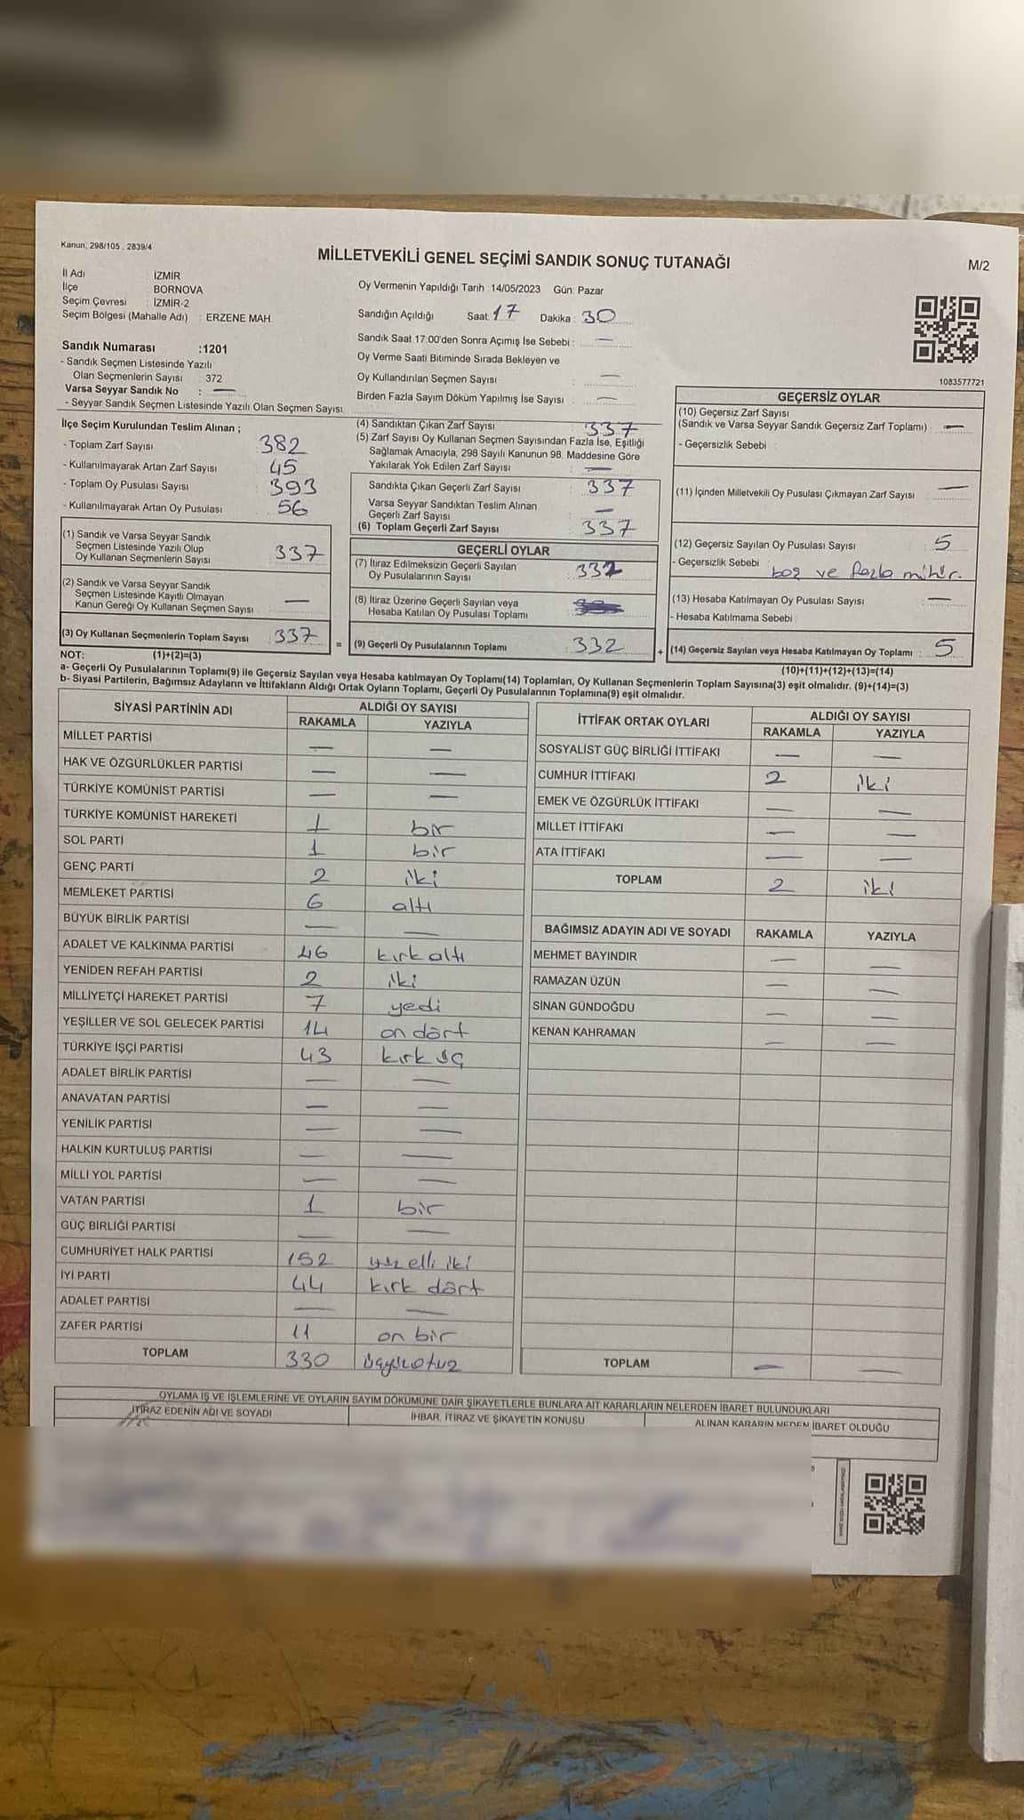 Kanun, 298/105, 2839/4
MİLLETVEKİLİ GENEL SEÇİMİ SANDIK SONUÇ TUTANAĞI
M/2
İl Adı İZMİR
İlçe BORNOVA
Seçim Çevresi : İZMİR-2
Seçim Bölgesi (Mahalle Adı) : ERZENE MAH.
Oy Vermenin Yapıldığı Tarih :14/05/2023 Gün: Pazar
Sandığın Açıldığı Saat: 17 Dakika: 30
Sandık Saat 17:00'den Sonra Açımış İse Sebebi : —
Oy Verme Saati Bitiminde Sırada Bekleyen ve
Oy Kullandırılan Seçmen Sayısı : —
Birden Fazla Sayım Döküm Yapılmış İse Sayısı : —
1083577721
Sandık Numarası :1201
- Sandık Seçmen Listesinde Yazılı
Olan Seçmenlerin Sayısı : 372
Varsa Seyyar Sandık No : —
- Seyyar Sandık Seçmen Listesinde Yazılı Olan Seçmen Sayısı
İlçe Seçim Kurulundan Teslim Alınan ;
- Toplam Zarf Sayısı 382
- Kullanılmayarak Artan Zarf Sayısı 45
- Toplam Oy Pusulası Sayısı 393
- Kullanılmayarak Artan Oy Pusulası 56
(1) Sandık ve Varsa Seyyar Sandık
Seçmen Listesinde Yazılı Olup
Oy Kullanan Seçmenlerin Sayısı 337
(2) Sandık ve Varsa Seyyar Sandık
Seçmen Listesinde Kayıtlı Olmayan
Kanun Gereği Oy Kullanan Seçmen Sayısı —
(3) Oy Kullanan Seçmenlerin Toplam Sayısı 337 =
(4) Sandıktan Çıkan Zarf Sayısı 337
(5) Zarf Sayısı Oy Kullanan Seçmen Sayısından Fazla İse, Eşitliği
Sağlamak Amacıyla, 298 Sayılı Kanunun 98. Maddesine Göre
Yakılarak Yok Edilen Zarf Sayısı —
Sandıkta Çıkan Geçerli Zarf Sayısı 337
Varsa Seyyar Sandıktan Teslim Alınan
Geçerli Zarf Sayısı —
(6) Toplam Geçerli Zarf Sayısı 337
GEÇERLİ OYLAR
(7) İtiraz Edilmeksizin Geçerli Sayılan
Oy Pusulalarının Sayısı 332
(8) İtiraz Üzerine Geçerli Sayılan veya
Hesaba Katılan Oy Pusulası Toplamı
(9) Geçerli Oy Pusulalarının Toplamı 332 +
GEÇERSİZ OYLAR
(10) Geçersiz Zarf Sayısı
(Sandık ve Varsa Seyyar Sandık Geçersiz Zarf Toplamı) : —
- Geçersizlik Sebebi :
(11) İçinden Milletvekili Oy Pusulası Çıkmayan Zarf Sayısı —
(12) Geçersiz Sayılan Oy Pusulası Sayısı 5
- Geçersizlik Sebebi boş ve fazla mühür.
(13) Hesaba Katılmayan Oy Pusulası Sayısı —
- Hesaba Katılmama Sebebi
(14) Geçersiz Sayılan veya Hesaba Katılmayan Oy Toplamı : 5
NOT: (1)+(2)=(3)
(10)+(11)+(12)+(13)=(14)
a- Geçerli Oy Pusulalarının Toplamı(9) ile Geçersiz Sayılan veya Hesaba katılmayan Oy Toplamı(14) Toplamları, Oy Kullanan Seçmenlerin Toplam Sayısına(3) eşit olmalıdır. (9)+(14)=(3)
b- Siyasi Partilerin, Bağımsız Adayların ve İttifakların Aldığı Ortak Oyların Toplamı, Geçerli Oy Pusulalarının Toplamına(9) eşit olmalıdır.
SİYASİ PARTİNİN ADI ALDIĞI OY SAYISI
RAKAMLA YAZIYLA
MİLLET PARTİSİ — —
HAK VE ÖZGÜRLÜKLER PARTİSİ — —
TÜRKİYE KOMÜNİST PARTİSİ — —
TÜRKİYE KOMÜNİST HAREKETİ 1 bir
SOL PARTİ 1 bir
GENÇ PARTİ 2 iki
MEMLEKET PARTİSİ 6 altı
BÜYÜK BİRLİK PARTİSİ — —
ADALET VE KALKINMA PARTİSİ 46 kırk altı
YENİDEN REFAH PARTİSİ 2 iki
MİLLİYETÇİ HAREKET PARTİSİ 7 yedi
YEŞİLLER VE SOL GELECEK PARTİSİ 14 on dört
TÜRKİYE İŞÇİ PARTİSİ 43 kırk üç
ADALET BİRLİK PARTİSİ — —
ANAVATAN PARTİSİ — —
YENİLİK PARTİSİ — —
HALKIN KURTULUŞ PARTİSİ — —
MİLLİ YOL PARTİSİ — —
VATAN PARTİSİ 1 bir
GÜÇ BİRLİĞİ PARTİSİ — —
CUMHURİYET HALK PARTİSİ 152 yüz elli iki
İYİ PARTİ 44 kırk dört
ADALET PARTİSİ — —
ZAFER PARTİSİ 11 on bir
TOPLAM 330 üçyüzotuz
İTTİFAK ORTAK OYLARI ALDIĞI OY SAYISI
RAKAMLA YAZIYLA
SOSYALİST GÜÇ BİRLİĞİ İTTİFAKI — —
CUMHUR İTTİFAKI 2 iki
EMEK VE ÖZGÜRLÜK İTTİFAKI — —
MİLLET İTTİFAKI — —
ATA İTTİFAKI — —
TOPLAM 2 iki
BAĞIMSIZ ADAYIN ADI VE SOYADI RAKAMLA YAZIYLA
MEHMET BAYINDIR — —
RAMAZAN ÜZÜN — —
SİNAN GÜNDOĞDU — —
KENAN KAHRAMAN — —
TOPLAM — —
OYLAMA İŞ VE İŞLEMLERİNE VE OYLARIN SAYIM DÖKÜMÜNE DAİR ŞİKAYETLERLE BUNLARA AİT KARARLARIN NELERDEN İBARET BULUNDUKLARI
İTİRAZ EDENİN ADI VE SOYADI İHBAR, İTİRAZ VE ŞİKAYETİN KONUSU ALINAN KARARIN NEDEN İBARET OLDUĞU